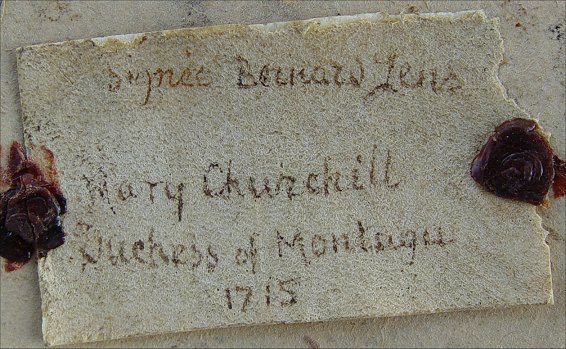 Signée Bernard Lens
Mary Churchill
Duchess of Montagu
1715